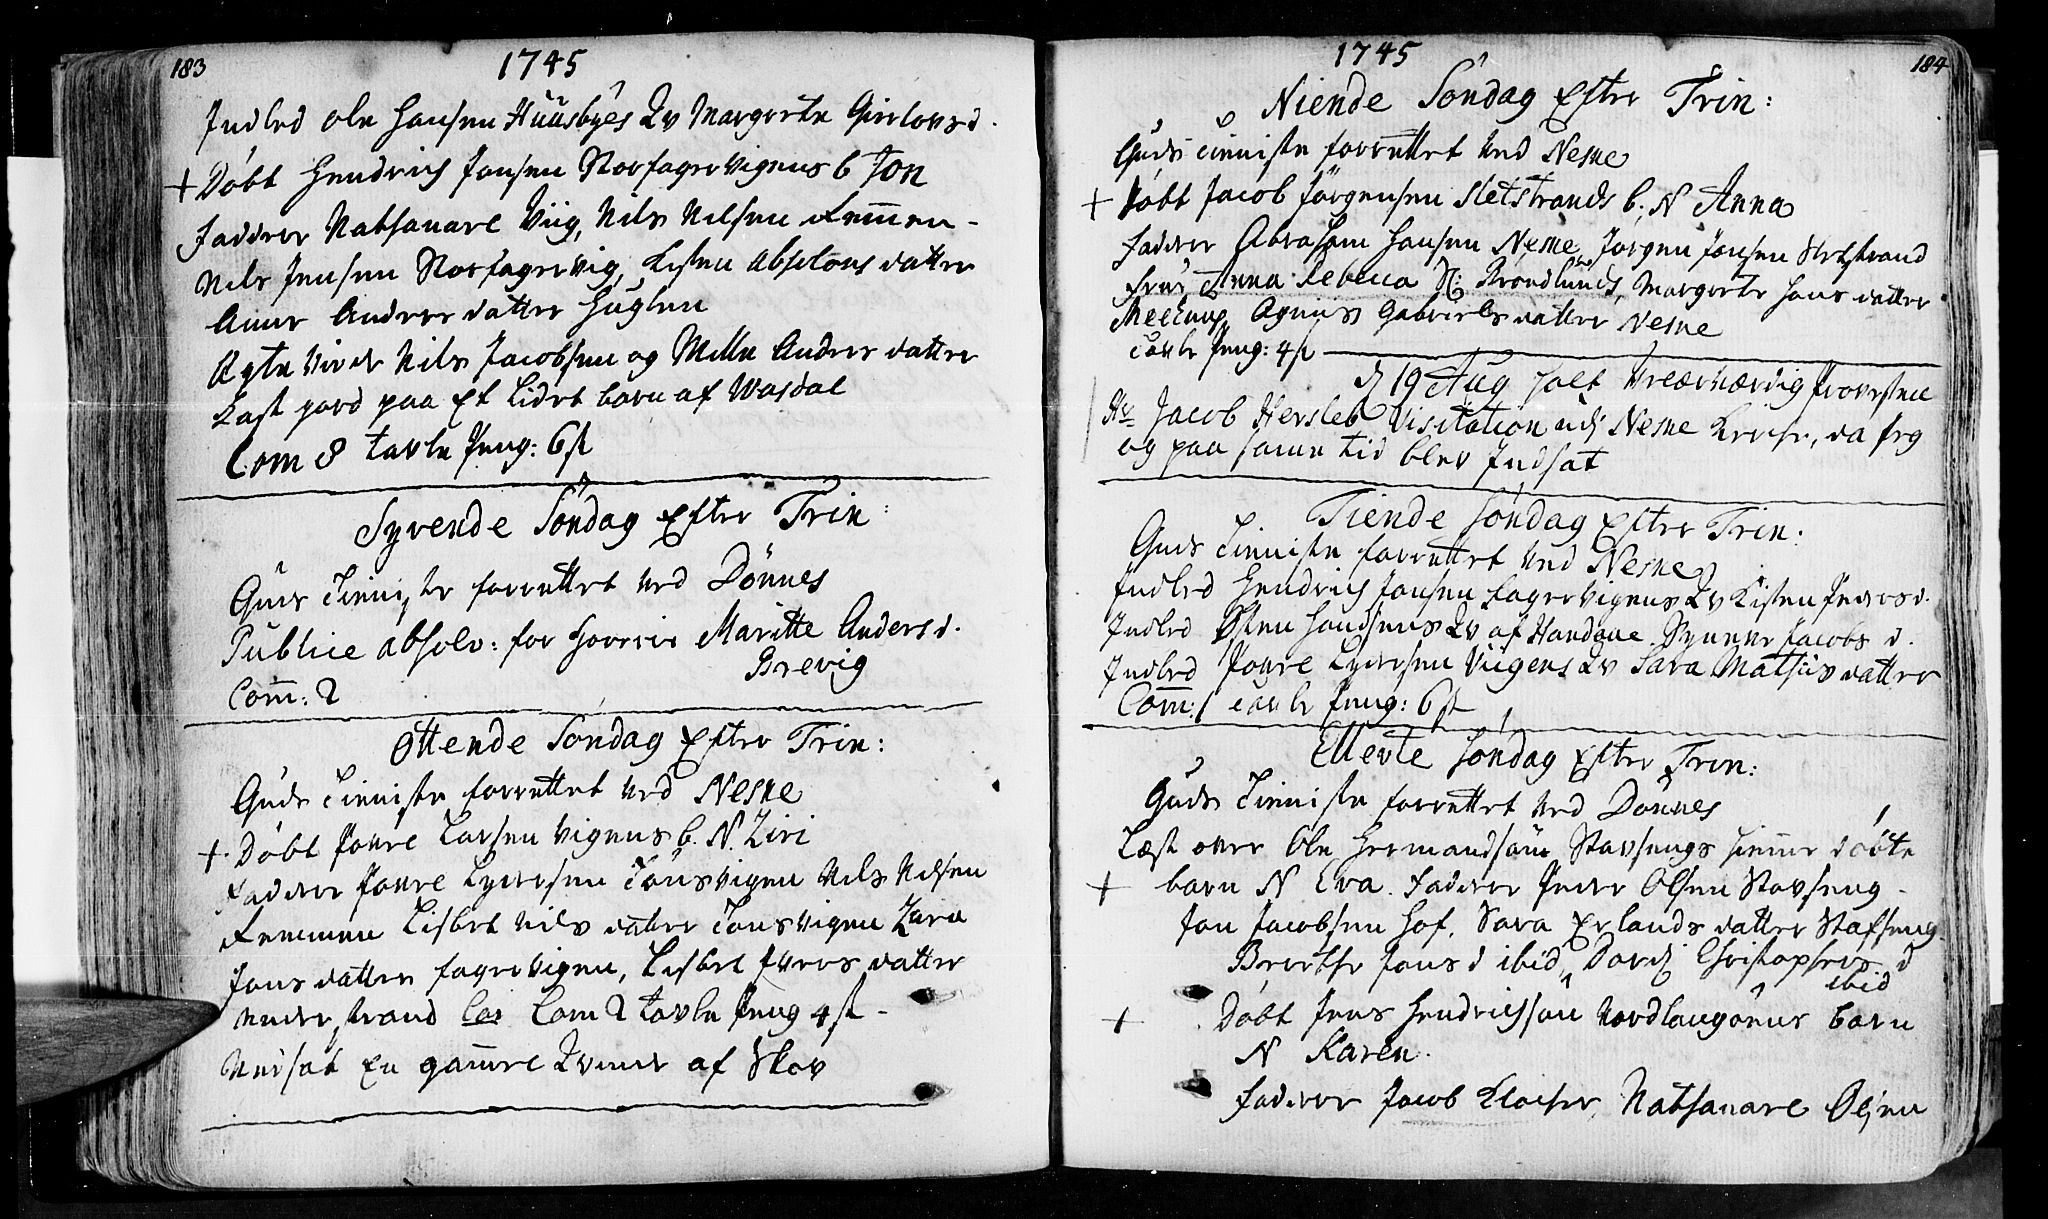 183
1745
Indled Ole Hansen Huusbyes Qv Margrete Gierlovsd.
+ Döbt Hendrich Jonsen Storfagervigens b Jon
Fadder Nathanael Viig, Nils Nilsen Remmen
Nils Jensen Storfagervig, Kisten Absolons datter
Anne Anders datter Huglen
Ægte viede Nils Jacobsen og Mille Anders datter
Kast jord paa et lidet barn af Wasdal
Com 8 tavle Peng: 6 ſ
Syvende Söndag Efter Trin:
Guds Tienniste forrettet ved Dönnes
Publice absolv: for Horerie Maritte Anders d.
Brevig
Com̄: 2
Ottende Söndag Efter Trin:
Guds Tienniste forrettet ved Nesne
+ Döbt Povre Larsen Vigens b. N. Ziri
Fadder Povre Tönsvigen Nils Nilsen
Remmen Lisbet Nils datter Tonsvigen Zara
Jons datter fagervigen, Lisbet Ivers datter
Nederstrand Com 2 tavle Peng 4 ſ
Nedsat En gammel Qvinde af Skov
1745
184
Niende Söndag Efter Trin:
Guds Tienniste forrettet ved Nesne
+ Döbt Jacob Jörgensen Sletstrands b. N Anna
Fadder Abraham Hansen Nesne, Jörgen Jonsen Sletstrand
Frue Anna Rebeca Sl: Brondlunds, Margrete Hans datter
Agnis Gabriels datter Nesne
Tavle Peng: 4 ſ
d 19 Aug holt Velærværdig Provsten
Hr Jacob Hersleb Visitation udj Nesne Kirche, da jeg
og paa samme tid blev Indsat
Tiende Söndag Efter Trin:
Guds Tienniste forrettet ved Nesne
Indled Hendrich Jonsen fagervigens Qv Kisten Peders d.
Indled Östen Qv af Handnæ Synneve Jacobs d.
Indled Povre Viigens Qv Sara Mathis datter
Com̄: 1 tavle Peng: 6 ſ
Ellevte Söndag Efter Trin:
Guds Tienniste forrettet ved Dönnes
Læst over Ole Hermandsöns Stavsengs hiemme döbte
+ barn N Eva. Fadder Peder Olsen Stavseng
Jon Jacobsen Hof, Sara Erlands datter Stafseng
Berethe Jons d ibid, Dordj Christophers d
ibid
+ Döbt Jens Hendrichsön Nordlangöens barn
N Karen.
Fadder Jacob Klocker, Nathanael Olsen